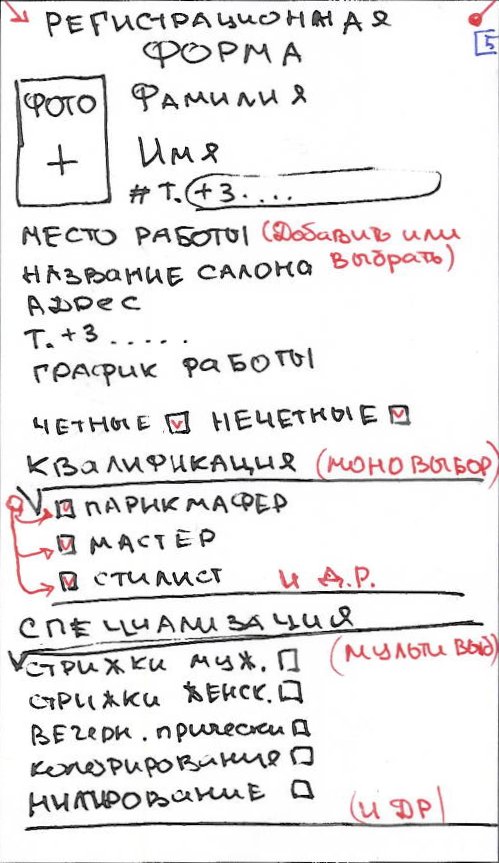 РЕГИСТРАЦИОННАЯ
ФОРМА
5
ФОТО
+
ФАМИЛИЯ
ИМЯ
# Т. +3....
МЕСТО РАБОТЫ (Добавить или
выбрать)
НАЗВАНИЕ САЛОНА
АДРЕС
Т. +3.....
ГРАФИК РАБОТЫ
ЧЕТНЫЕ НЕЧЕТНЫЕ
КВАЛИФИКАЦИЯ (МОНОВЫБОР)
ПАРИКМАФЕР
МАСТЕР
СТИЛИСТ И Д.Р.
СПЕЦИАЛИЗАЦИЯ
(МУЛЬТИ ВЫБ)
СТРИЖКИ МУЖ.
СТРИЖКИ ЖЕНСК.
ВЕЧЕРН. прически
колорирование
(И ДР)